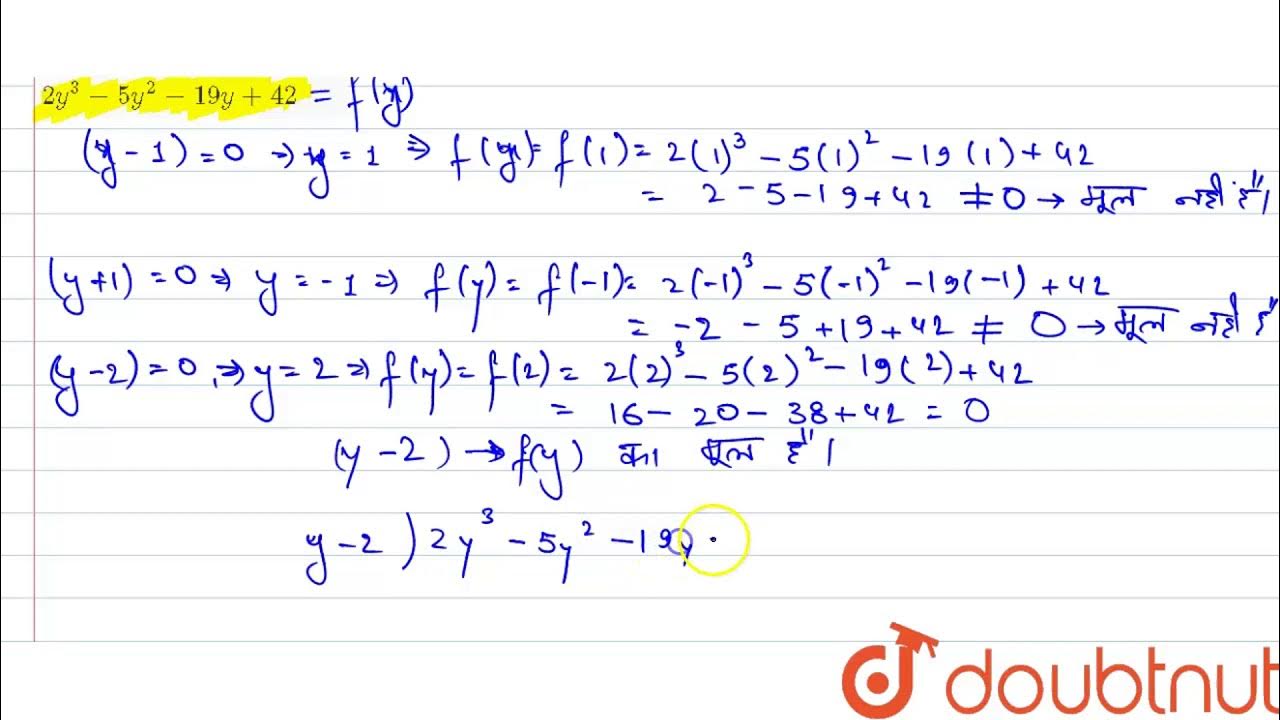 2y³ − 5y² − 19y + 42 = f(y)
(y - 1) = 0 → y = 1 ⇒ f(y) = f(1) = 2(1)³ - 5(1)² - 19(1) + 42
= 2 - 5 - 19 + 42 ≠ 0 → मूल नहीं है"।
(y+1) = 0 ⇒ y = -1 ⇒ f(y) = f(-1) = 2(-1)³ - 5(-1)² - 19(-1) + 42
= -2 - 5 + 19 + 42 ≠ 0 → मूल नहीं है"
(y-2) = 0, ⇒ y = 2 ⇒ f(y) = f(2) = 2(2)³ - 5(2)² - 19(2) + 42
= 16 - 20 - 38 + 42 = 0
(y - 2) → f(y) का मूल है"।
y - 2 ) 2y³ - 5y² - 19y
doubtnut